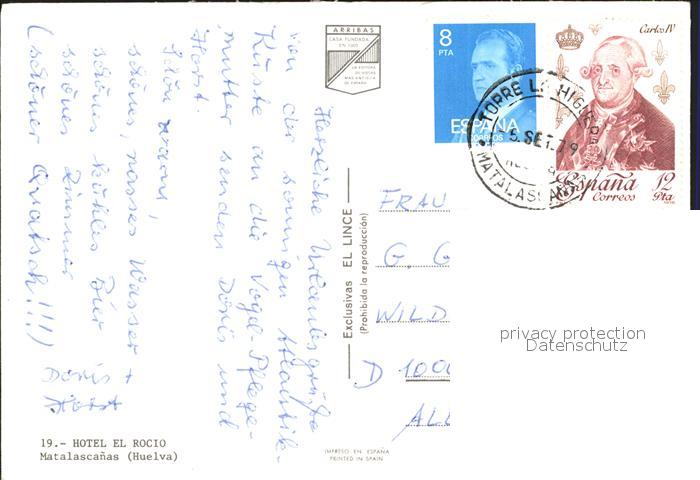 Herzliche Urlaubsgrüße
von der sonnigen Atlantik-
Küste an die Vogel-Pflege-
mutter senden Doris und
Horst.
Schön warm!
schönes, nasses Wasser +
schönes kühles Bier
schönes Zimmer
(schöner Quatsch!!!!)
Doris +
Horst
19.- HOTEL EL ROCIO
Matalascañas (Huelva)
ARRIBAS
CASA FUNDADA
EN 1905
LA EDITORA
DE VISTAS
MAS ANTIGUA
DE ESPAÑA
Exclusivas EL LINCE
(Prohibida la reproducción)
IMPRESO EN ESPAÑA
PRINTED IN SPAIN
8
PTA
ESPAÑA
CORREOS
Carlos IV
España 12
Correos Pta
TORRE LA HIGUE
5.SET.79
MATALASCAÑAS
FRAU
G. G
WILD
D 1000
ALL
privacy protection
Datenschutz